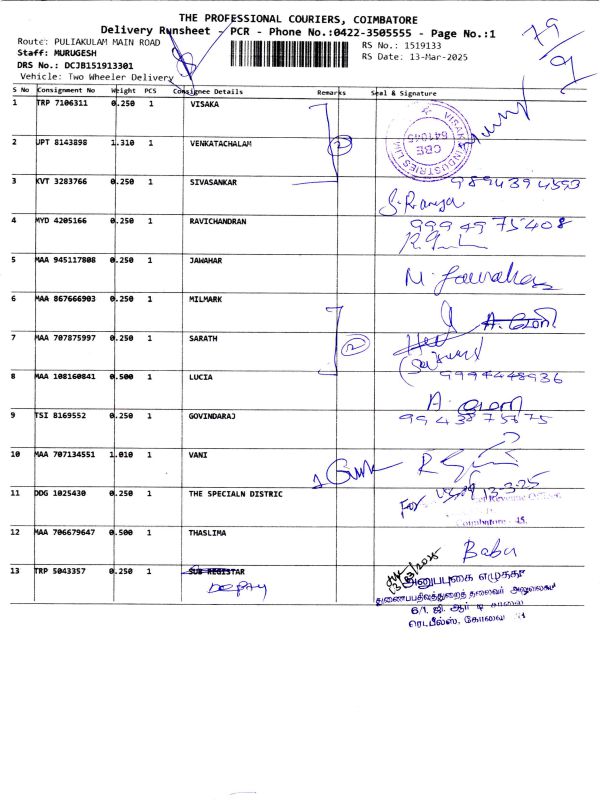 THE PROFESSIONAL COURIERS, COIMBATORE
Delivery Runsheet - PCR - Phone No.:0422-3505555 - Page No.:1
Route: PULIAKULAM MAIN ROAD
RS No.: 1519133
Staff: MURUGESH
RS Date: 13-Mar-2025
DRS No.: DCJB151913301
Vehicle: Two Wheeler Delivery
79/9
S No Consignment No Weight PCS Consignee Details Remarks Seal & Signature
1 TRP 7106311 0.250 1 VISAKA
VISAKA INDUSTRIES LIMI
CBE
641045
2 JPT 8143898 1.310 1 VENKATACHALAM 2
3 KVT 3283766 0.250 1 SIVASANKAR 9894394593
4 MYD 4205166 0.250 1 RAVICHANDRAN 9994975408
5 MAA 945117808 0.250 1 JAWAHAR
6 MAA 867666903 0.250 1 MILMARK
7 MAA 707875997 0.250 1 SARATH 2
8 MAA 108160841 0.500 1 LUCIA 9994448936
9 TSI 8169552 0.250 1 GOVINDARAJ 9943875675
10 MAA 707134551 1.010 1 VANI
11 DDG 1025430 0.250 1 THE SPECIALN DISTRIC For 13-3-25
Revenue Officer
Coimbatore - 45.
12 MAA 706679647 0.500 1 THASLIMA Babu
13 TRP 5043357 0.250 1 SUB REGISTAR
13/03/2025
அனுப்புகை எழுத்தர்
துணைப்பதிவுத்துறைத் தலைவர் அலுவலகம்
6/1, ஜி. ஆர் டி சாலை
ரெட்பீல்ஸ், கோவை